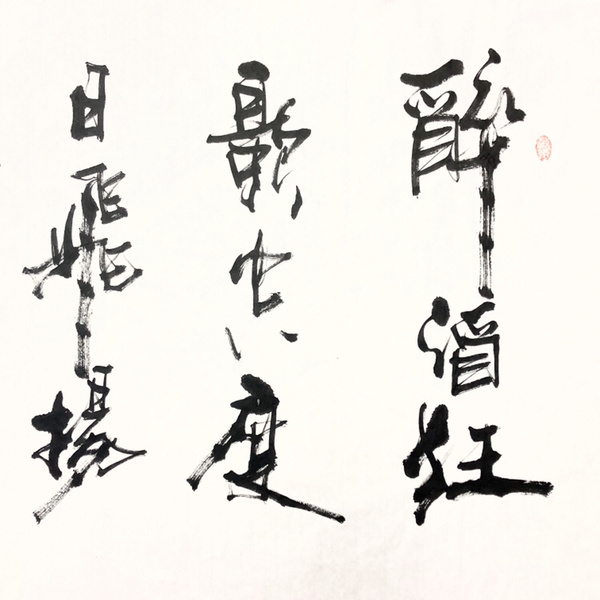 醉酒狂
歌空度
日飛揚